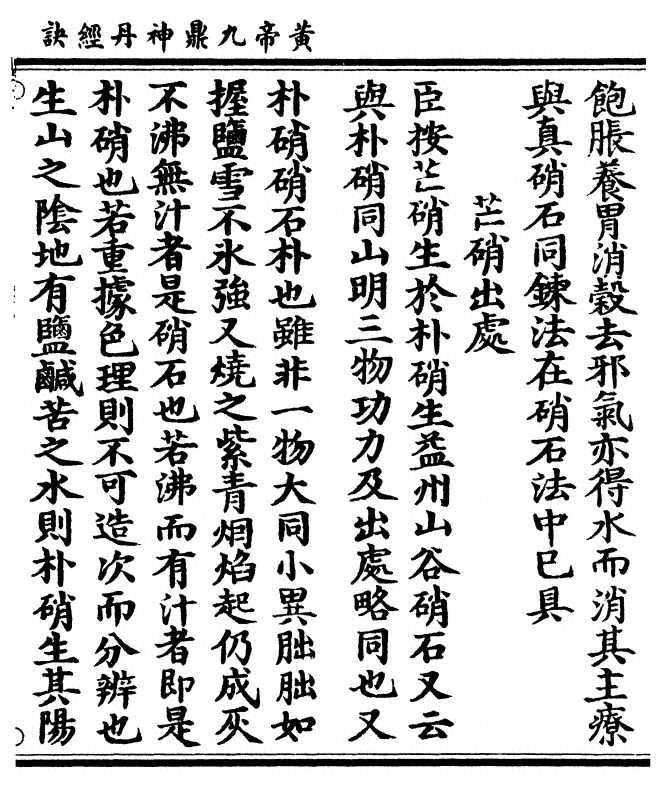 黃帝九鼎神丹經訣
飽脹養胃消穀去邪氣亦得水而消其主療
與真硝石同鍊法在硝石法中已具
芒硝出處
臣按芒硝生於朴硝生益州山谷硝石又云
與朴硝同山明三物功力及出處略同也又
朴硝硝石朴也雖非一物大同小異朏朏如
握鹽雪不氷強又燒之紫青烟焰起仍成灰
不沸無汁者是硝石也若沸而有汁者即是
朴硝也若重據色理則不可造次而分辨也
生山之陰地有鹽鹹苦之水則朴硝生其陽